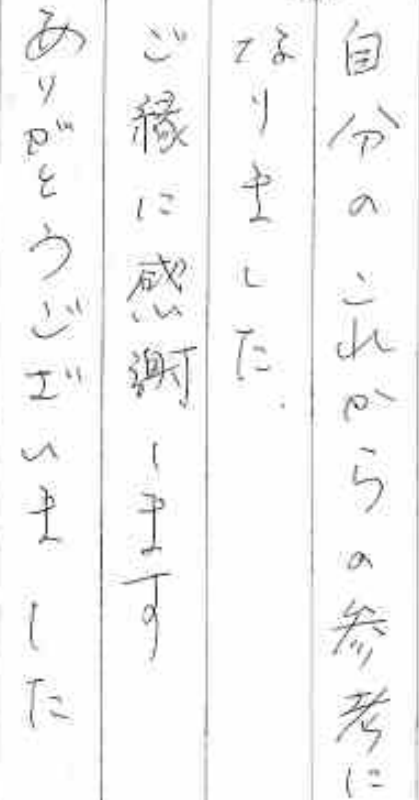 自分のこれからの参考に
なりました.
ご縁に感謝します
ありがとうございました